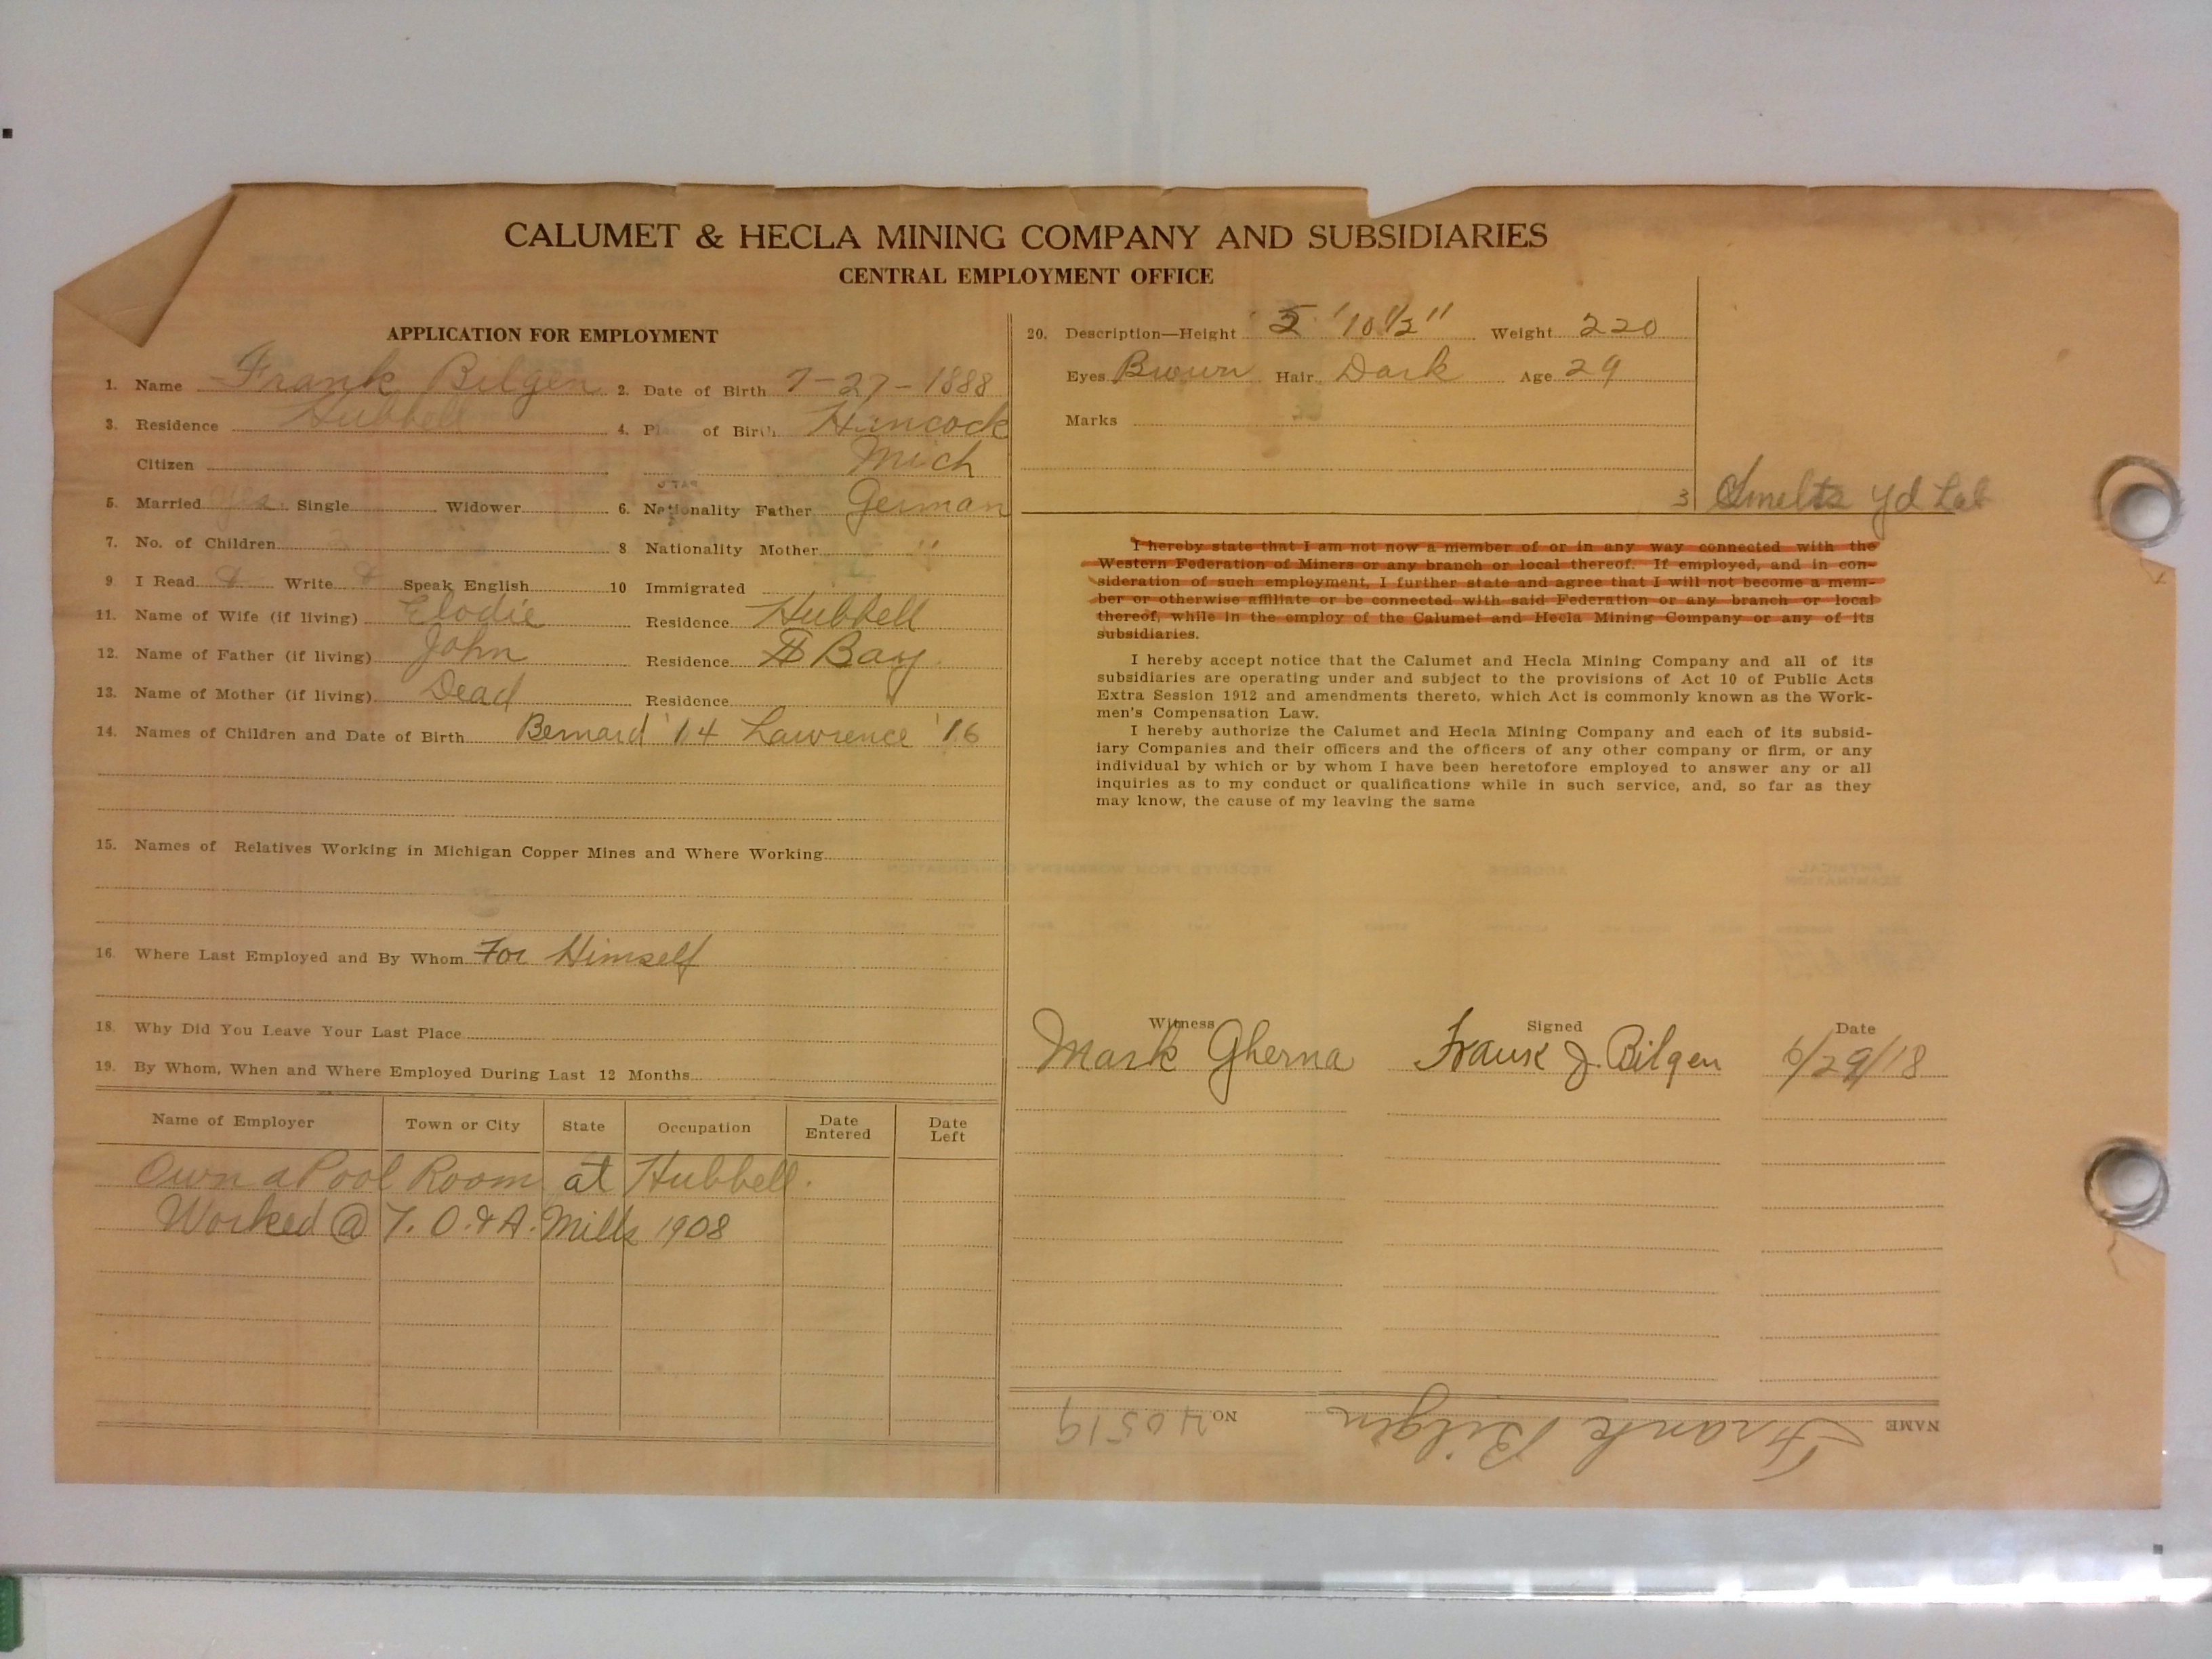 CALUMET & HECLA MINING COMPANY AND SUBSIDIARIES
CENTRAL EMPLOYMENT OFFICE
APPLICATION FOR EMPLOYMENT
1. Name Frank Bilgen 2. Date of Birth 7-27-1888
3. Residence Hubbell 4. of Birth Hancock
Citizen Mich
5. Married yes Single Widower 6. Nationality Father German
7. No. of Children 8 Nationality Mother "
9 I Read Write Speak English 10 Immigrated
11. Name of Wife (if living) Elodie Residence Hubbell
12. Name of Father (if living) John Residence Bay
13. Name of Mother (if living) Dead Residence
14. Names of Children and Date of Birth Bernard '14 Lawrence '16
15. Names of Relatives Working in Michigan Copper Mines and Where Working
16. Where Last Employed and By Whom For Himself
18. Why Did You Leave Your Last Place
19. By Whom, When and Where Employed During Last 12 Months
Name of Employer Town or City State Occupation Date Entered Date Left
Own a Pool Room at Hubbell.
Worked @ T. O. & A. Mills 1908
20. Description—Height 5' 10 1/2" Weight 220
Eyes Brown Hair Dark Age 29
Marks
3 Smelts Yd Lab
I hereby state that I am not now a member of or in any way connected with the
Western Federation of Miners or any branch or local thereof. If employed, and in con-
sideration of such employment, I further state and agree that I will not become a mem-
ber or otherwise affiliate or be connected with said Federation or any branch or local
thereof, while in the employ of the Calumet and Hecla Mining Company or any of its
subsidiaries.
I hereby accept notice that the Calumet and Hecla Mining Company and all of its
subsidiaries are operating under and subject to the provisions of Act 10 of Public Acts
Extra Session 1912 and amendments thereto, which Act is commonly known as the Work-
men's Compensation Law.
I hereby authorize the Calumet and Hecla Mining Company and each of its subsid-
iary Companies and their officers and the officers of any other company or firm, or any
individual by which or by whom I have been heretofore employed to answer any or all
inquiries as to my conduct or qualifications while in such service, and, so far as they
may know, the cause of my leaving the same
Witness Signed Date
Mark Gherna Frank J. Bilgen 6/29/18
NAME Frank Bilgen NO 40519